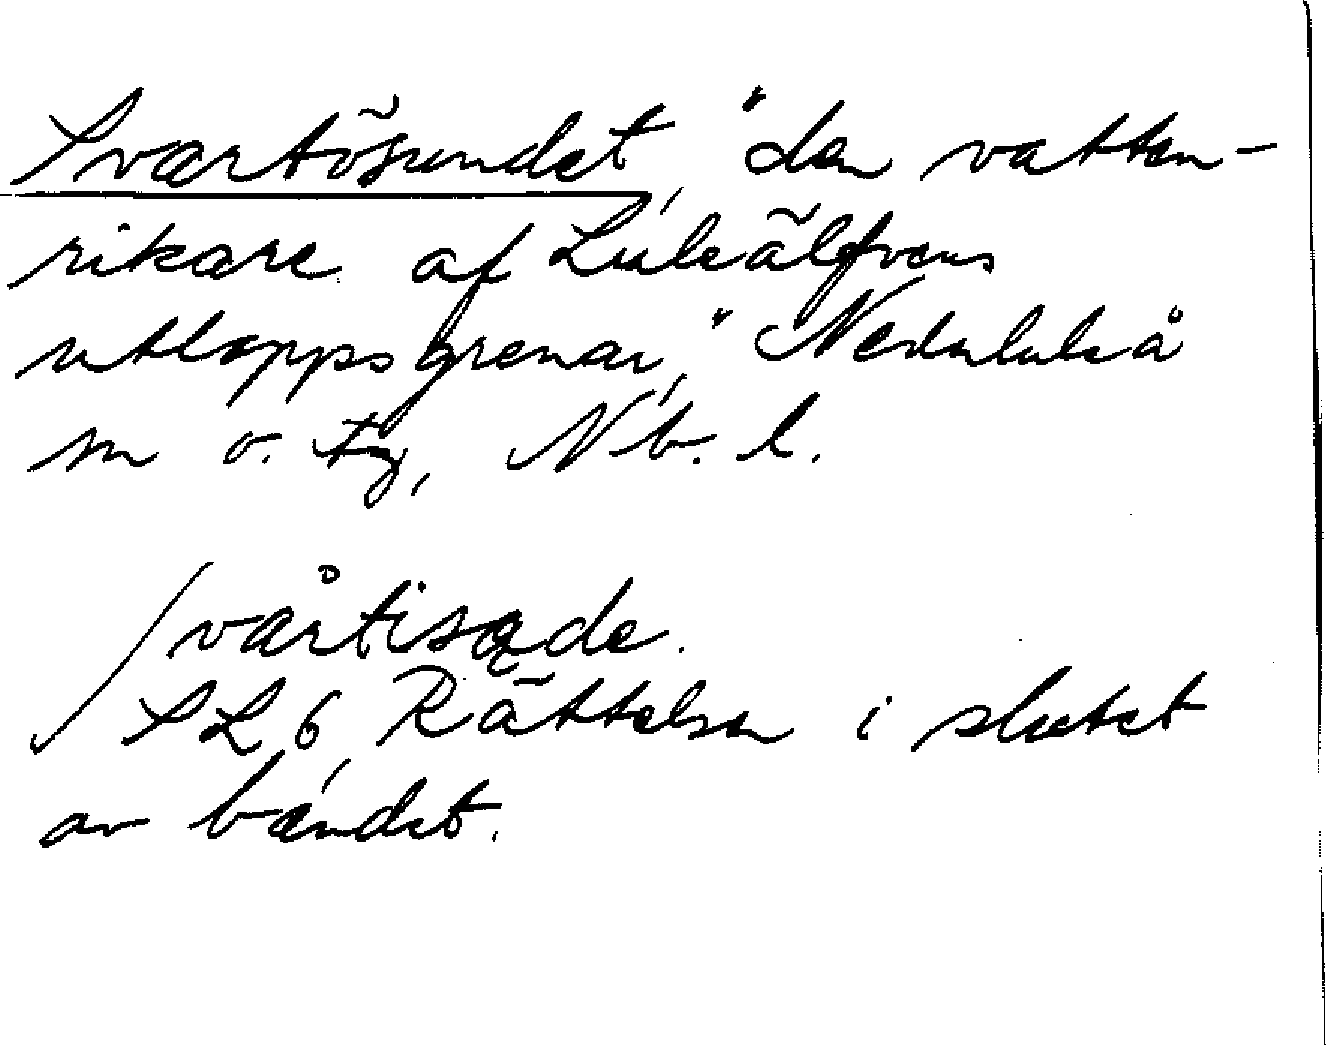 Svartösundet, "den vatten-
rikare af Luleälfvens
utloppsgrenar," Nederluleå
sn o. tg, Nb. l.
svårtisǫde.
SL 6, Rättelser i slutet
av bandet.